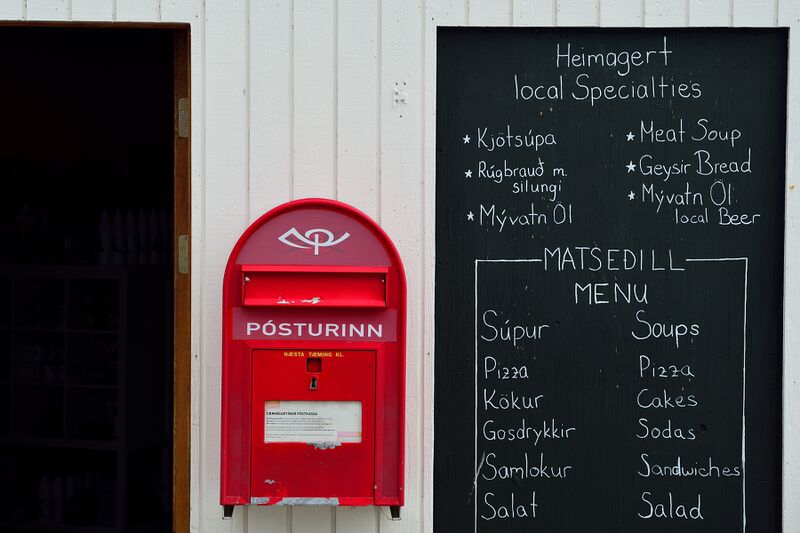 PÓSTURINN
NÆSTA TÆMING KL.
Heimagert
local Specialties
* Kjötsúpa
* Rúgbrauð m.
silungi
* Mývatn Öl
* Meat Soup
* Geysir Bread
* Mývatn Öl
local Beer
MATSEÐILL
MENU
Súpur Soups
Pizza Pizza
Kökur Cakes
Gosdrykkir Sodas
Samlokur Sandwiches
Salat Salad